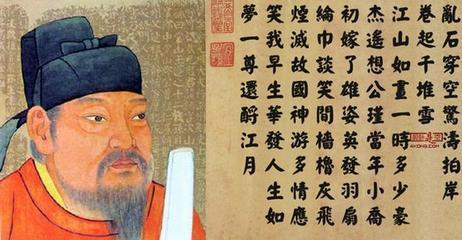 亂石穿空驚濤拍岸
卷起千堆雪
江山如畫一時多少豪
杰遙想公瑾當年小喬
初嫁了雄姿英發羽扇
綸巾談笑間檣櫓灰飛
煙滅故國神游多情應
笑我早生華發人生如
夢一尊還酹江月